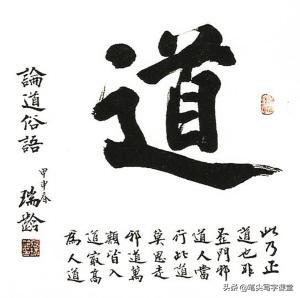 道
此乃正
道也非
歪門邪
道人當
行此道
莫思走
邪道萬
類皆入
道最高
為人道
論道俗語
甲申
瑞齡
头条 @笔头写字课堂